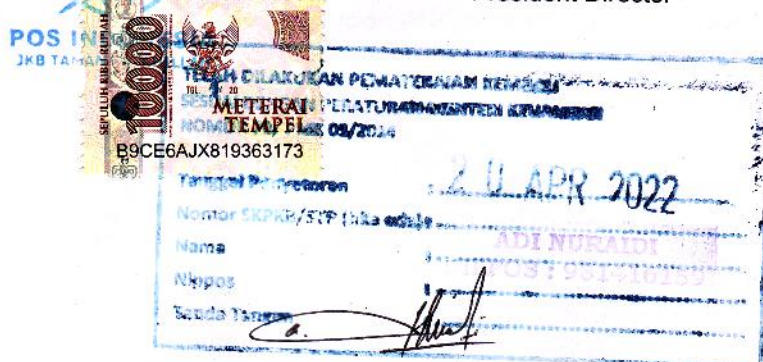 President Director
POS IN
JKB TAMAN
SEPULUH RIBU RUPIAH
10000
TGL. 20
METERAI
TEMPEL
B9CE6AJX819363173
TELAH DILAKUKAN PEMATERAIAN KEMUDIAN
PERATURAN MENTERI KEUANGAN
NOMOR 02/2014
Tanggal Penyetoran : 20 APR 2022
Nomor SKPKB/STP (jika ada) :
Nama : ADI NURAIDI
Nippos : 981416189
Tanda Tangan